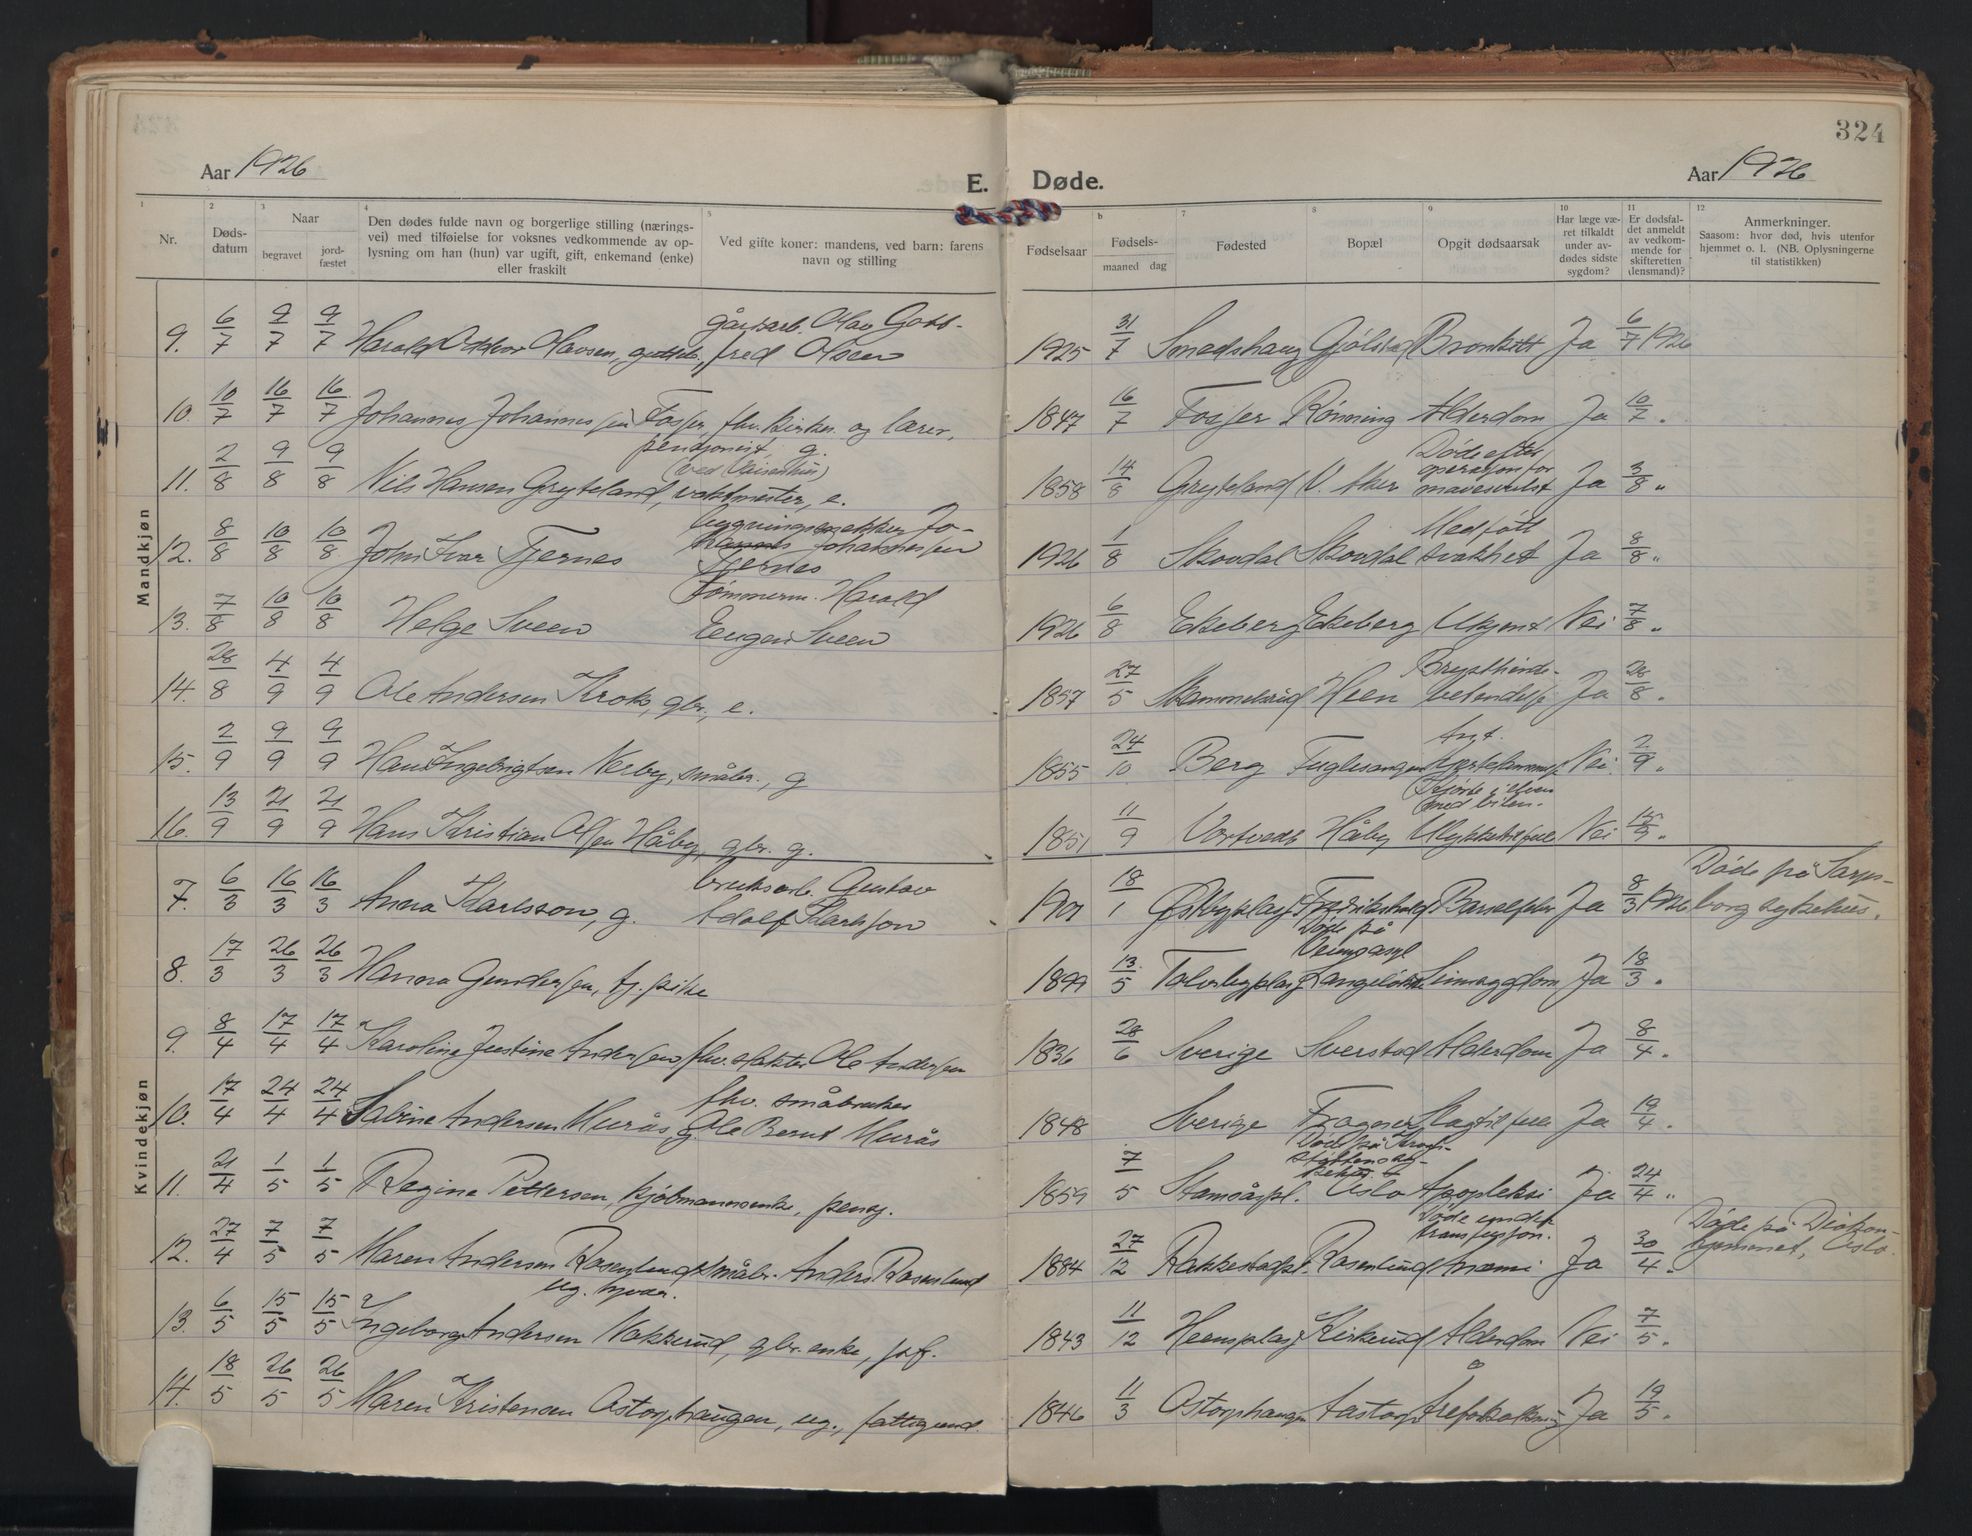 324
Aar 1926 E. Døde. Aar 1926
1 2 3 4 5 6 7 8 9 10 11 12
Nr. Dødsdatum Naar begravet jordfæstet
Den dødes fulde navn og borgerlige stilling (næringsvei) med tilføielse for voksnes vedkommende av oplysning om han (hun) var ugift, gift, enkemand (enke) eller fraskilt
Ved gifte koner: mandens, ved barn: farens navn og stilling
Fødselsaar Fødsels- maaned dag Fødested Bopæl Opgit dødsaarsak
Har læge været tilkaldt under avdødes sidste sygdom?
Er dødsfaldet anmeldt av vedkommende for skifteretten (lensmand)?
Anmerkninger. Saasom: hvor død, hvis utenfor hjemmet o. l. (NB. Oplysningerne til statistikken)
Mandkjøn
9. 6/7 9/7 9/7 Harald Oddvar Olavsen, gårdsarb. Olav Gottfred Olsen 1925 31/7 Smedshaug Gjølstad Bronkitt Ja 6/7 1926
10. 10/7 16/7 16/7 Johannes Johannessen Fosser, fhv. kirkes. og lærer, pensjonist, g. 1847 16/7 Fosser Rønning Alderdom Ja 10/7 "
11. 2/8 9/8 9/8 Nils Hansen Gryteland, vaktmester, e. (ved Vaisenhus) 1858 14/8 Gryteland V. Aker Døde efter operasjon for mavesvulst Ja 3/8 "
12. 8/8 10/8 10/8 John Ivar Tjernes Johannessen Tjernes 1926 1/8 Skovdal Skovdal Medfødt svakhet Ja 8/8 "
13. 7/8 10/8 10/8 Helge Sveen tømmerm. Harald Eugen Sveen 1926 6/8 Ekeberg Ekeberg Ukjent Nei 7/8 "
14. 28/8 4/9 4/9 Ole Andersen Krok, gbr., e. 1857 27/5 Skammelsrud Heen Brysthinde- betendelse Ja 28/8 "
15. 2/9 9/9 9/9 Hans Ingebrigtsen Nerby, småbr., g 1855 24/10 Berg Fuglesangen Nei 2/9 "
16. 13/9 21/9 21/9 Hans Kristian Olsen Håby, gbr. g. 1851 11/9 Vortvedt Håby Kjørte i elven med bilen. Ulykkestilfelle Nei 15/9 "
Kvindekjøn
7. 6/3 16/3 16/3 Anna Karlsson, g. bruksarb. Gustav Adolf Karlsson 1901 18/1 Østbyplass Fredrikshald Barselfeber Ja 8/3 1926 Døde på Sarpsborg sykehus.
8. 17/3 26/3 26/3 Hanna Gundersen, tj. pike 1899 13/5 Døde på Ja 18/3 "
9. 8/4 17/4 17/4 Karoline Justine Andersen fhv. slakter Ole Andersen 1836 28/6 Sverige Sverstad Alderdom Ja 8/4 "
10. 17/4 24/4 24/4 Sabine Andersen Murås g. fhv. småbruker Ole Bernt Murås 1848 Sverige Fragner Slagtilfelle Ja 19/4 "
11. 21/4 1/5 1/5 Regine Pettersen, kjøbmannsenke, pensj. 1859 7/5 Stamsåspl. Oslo Apopleksi Ja 24/4 "
12. 27/4 7/5 7/5 Maren Andersen Rosenlund ug. hjvær. småbr. Anders Rosenlund 1884 27/12 Rakkestadpl. Rosenlund Døde under transfusjon. Anæmi Ja 30/4 " Døde på Diakonhjemmet, Oslo.
13. 6/5 15/5 15/5 Ingeborg Andersen Nakkerud, gbr. enke, 1843 11/12 Heensplass Kirkerud Alderdom Nei 7/5 "
14. 18/5 26/5 26/5 Maren Kristensen Åstorphaugen, ug., fattigund. 1846 11/3 Åstorphaugen Aastorp Åreforkalkning Ja 19/5 "